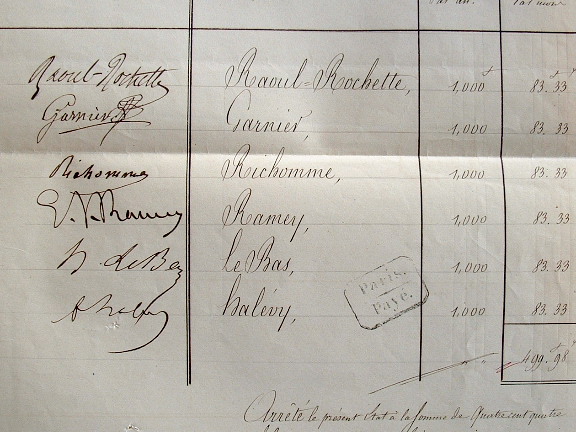 Par an. Par mois
Raoul-Rochette Raoul=Rochette, 1,000 83.33
Garnier Garnier, 1,000 83.33
Richomme Richomme, 1,000 83.33
E. J. Ramey Ramey, 1,000 83.33
h. LeBas le Bas, 1,000 83.33
halévy, 1,000 83.33
Paris.
Payé.
" " 499.98
Arrêté le présent état à la somme de Quatre cent quatre